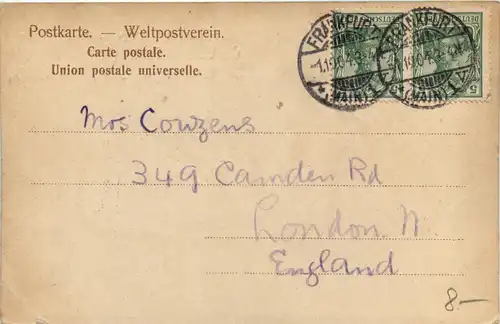 Postkarte. — Weltpostverein.
Carte postale.
Union postale universelle.
FRANKFURT
(MAIN) 1
FRANKFURT
(MAIN) 1
5
Mrs Cowzens
349 Camden Rd
London N.
England
8.-